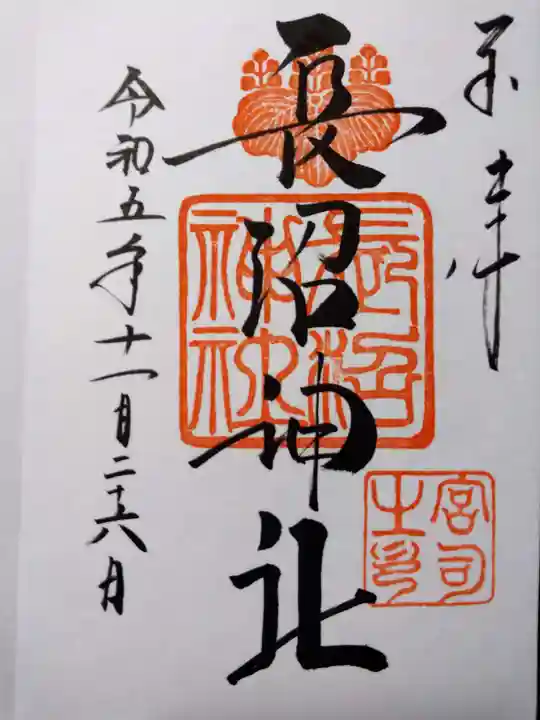 奉拝
長沼神社
長沼神社
宮司之印
令和五年十一月二十六日